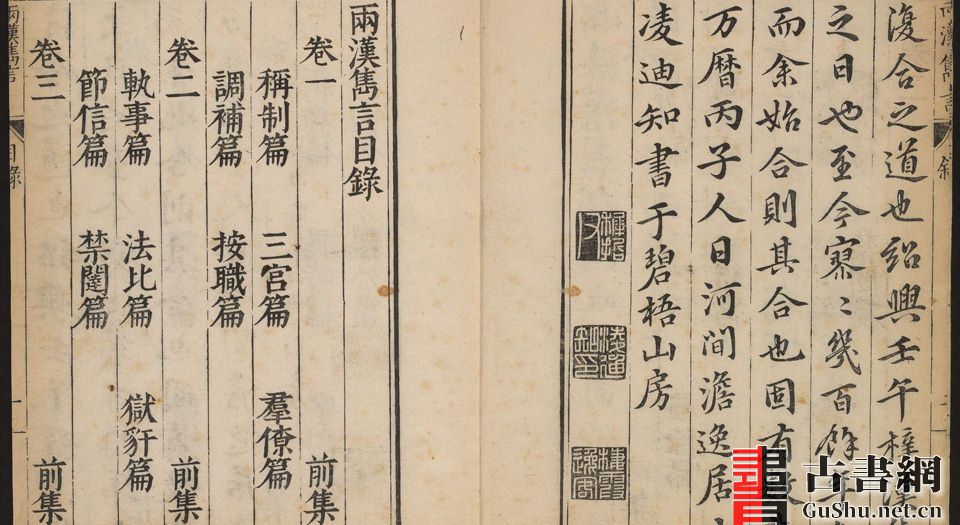 復合之道也紹興壬午梓
之日也至今寥〻幾百餘年
而余始合則其合也固有
万曆丙子人日河間澹逸居
凌迪知書于碧梧山房
凌迪知印
兩漢雋言目錄
卷一 前集
稱制篇 三宮篇 羣僚篇
調補篇 按職篇
卷二 前集
軌事篇 法比篇 獄豻篇
節信篇 禁闥篇
卷三 前集
兩漢雋言 目錄 一
古書網
GuShu.net.cn